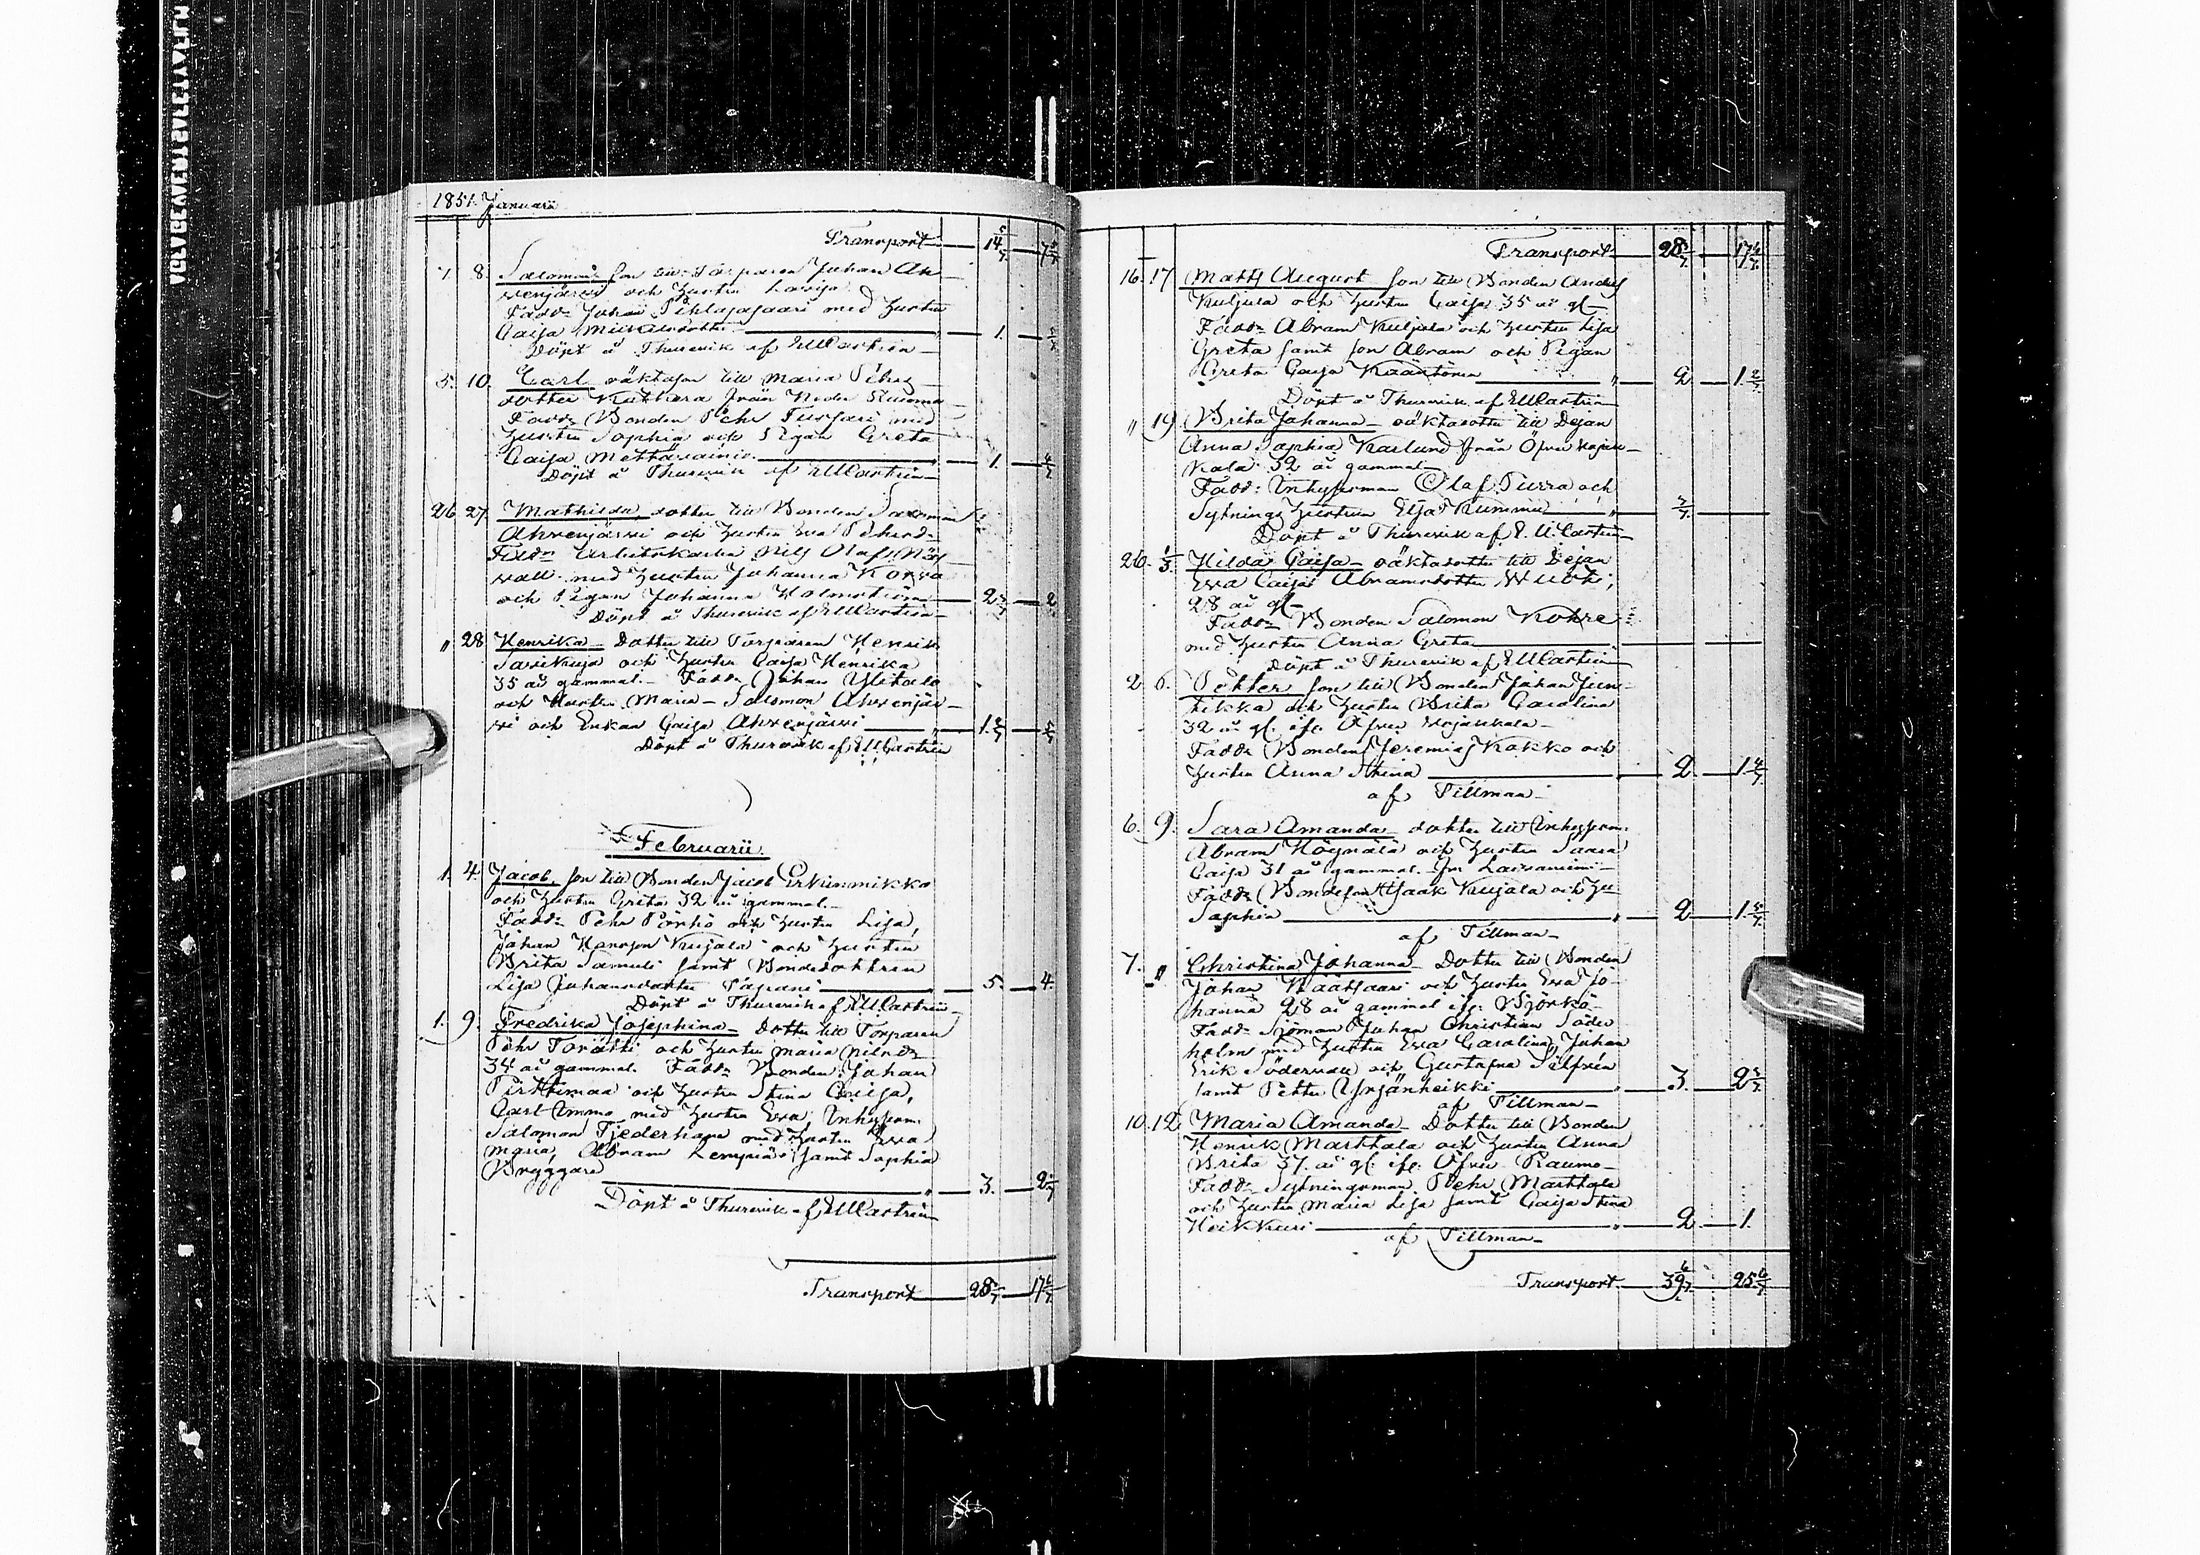 1851. Januarii
Transport 14 5/7 7 5/7
7 8 Salomon, son till Torparen Johan Ah
venjärvi och hustru Lovisa
Fadd: Johan Pihlajasaari med hustru
Caisa 1.
Döpt å Thurevik af EUCastrén
5. 10. Carl oäktason till Maria Pehrs
dotter från Neder Rauma
Fadd: Bonden Pehr med
hustru Sophia och Pigan Greta
Caisa 1.
Döpt å Thurevik af EUCastrén
26 27. Mathilda, dotter till Bonden Salomon
Ahvenjärvi och hustru Eva Pehrsd:
Fadd: Arbetskarlen Nils Olof
med hustru Johanna Korva
och Pigan Johanna Holmström 2
Döpt å Thurevik af EUCastrén
" 28 Henrika Dotter till Torparen Henrik
Sarikuja och hustru Caisa Henrika
35 år gammal. Fadd: Johan Ylitalo
och Hustru Maria Salomon Ahvenjär-
vi och Enkan Caisa Ahvenjärvi 1.
Döpt å Thurevik af EUCastrén
Februarii.
1. 4. Jacob, son till Bonden Jacob Erkinmikko
och hustru Greta 32 år gammal.
Fadd: Pehr Pörhö och hustru Lisa,
Johan Hansson Kujala och hustru
Brita Samuels samt Bondedottren
Lisa Johansdotter 5. 4.
Döpt å Thurevik af EUCastrén
1. 9. Fredrika Josephina Dotter till Torparen
Pehr och hustru Maria Nilsd:
34 år gammal. Fadd: Bonden Johan
Pirttimaa och hustru Stina Caisa,
Carl Immo med hustru Eva, Inhysesm.
Salomon Fjederhane med hustru Eva
Maria, Abram samt Sophia
Bryggare 3. 2
Döpt å Thurevik af EUCastrén
Transport 28 17 6/7
Transport 28 17 6/7
16. 17 Matts August son till Bonden Anders
Kuljula och hustru Caisa 35 år gl
Fadd: Abram Kuljula och hustru Lisa
Greta samt son Abram och Pigan
Greta Caisa 2 1 2/7
Döpt å Thurevik af EUCastrén
" 19. Brita Johanna oäktadotter till Dejan
Anna Sophia Karlund från Öfver Vojak-
kala 32 år gammal
Fadd: Inhysesman Olof Purra och
Sytnings hustrun Elsa Kummu
Döpt å Thurevik af E. U. Castrén
26. 1/3 Hilda Caisa oäktadotter till Dejan
Eva Caisa Abramsdotter
28 år gl
Fadd: Bonden Salomon Kohre
med hustru Anna Greta
Döpt å Thurevik af EUCastrén
2. 6. Petter son till Bonden Johan Jun-
tikka och hustru Brita Carolina
32 år gl. ifr. Öfver Vojakkala
Fadd: Bonden Jeremias Kokko och
hustru Anna Stina 2. 1 4/7
af Tillman
6. 9. Sara Amanda dotter till Inhysesm:
Abram Höynälä och hustru Saara
Caisa 31 år gammal.
Fadd: Bondeson Isaak Kujala och hu
Sophia 2 1
af Tillman
7. " Christina Johanna Dotter till Bonden
Johan och hustru Eva Jo-
hanna 28 år gammal ifr. Björkö
Fadd: Sjöman Johan Christian Söder
holm med hustru Eva Carolina, Johan
Erik Södervall och Gustafva Silfvén
samt Petter Yrjänheikki 3. 2
af Tillman
10. 12. Maria Amanda Dotter till Bonden
Henrik Marttala och hustru Anna
Brita 37. år gl: ifr: Öfver Raumo
Fadd: Sytningsman Pehr Marttala
och hustru Maria Lisa samt Caisa Stina
Heikkuri 2 1.
af Tillman
Transport 39 6/7 25 6/7